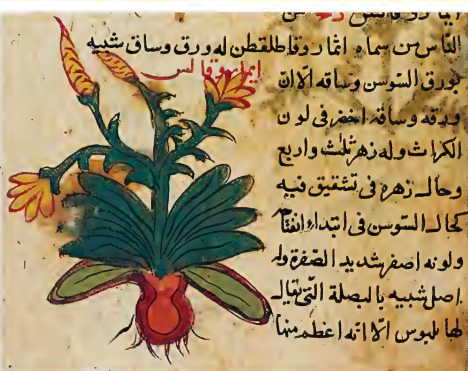 الناس من سماه انثاروقاطلقطن له ورق وساق شبيه
بورق السوسن وساقه الا ان
ايماروقالس
ورقه وساقه اخضر في لون
الكراث وله زهر ثلث واربع
وحال زهره في تشقيق فيه
كحال السوسن في ابتداء انفتا
ولونه اصفر شديد الصفرة وله
اصل شبيه بالبصلة التي يقال
لها بلبوس الا انه اعظم منها